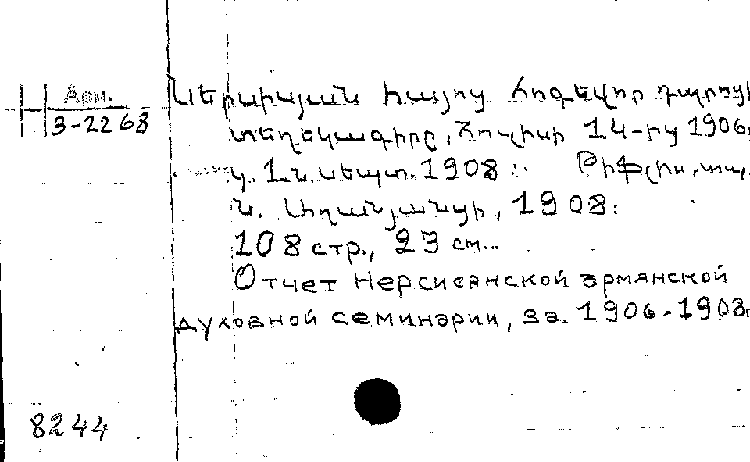 Арм.
3-2268
Ներսիսյան հայոց հոգևոր դպրոցի
տեղեկագիրը, հուլիսի 14-ից 1906,
1 ն. սեպտ. 1908: Թիֆլիս, տպ.
ն. Աղանյանցի, 1908:
108 стр., 23 см.
Отчет Нерсисянской армянской
духовной семинарии, за 1906-1908.
8244